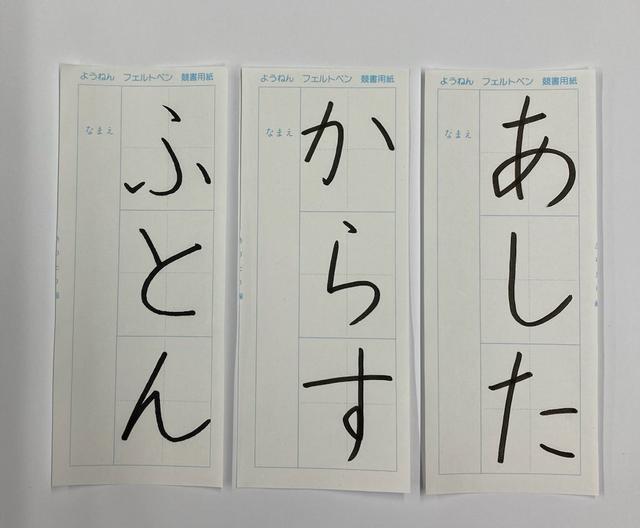 ようねん フェルトペン 競書用紙
なまえ
あした
ようねん フェルトペン 競書用紙
なまえ
からす
ようねん フェルトペン 競書用紙
なまえ
ふとん